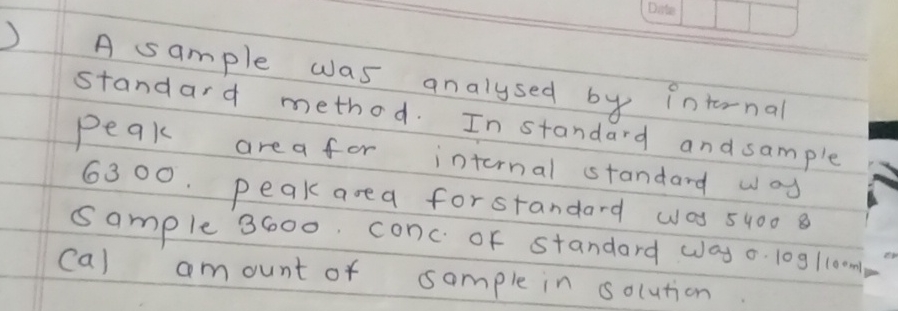 Date
)
A sample was analysed by internal
standard method. In standard and sample
peak area for internal standard was
6300. peak area for standard was 5400 &
sample 3600. conc. of standard was 0.10g/100ml
Cal amount of sample in solution.